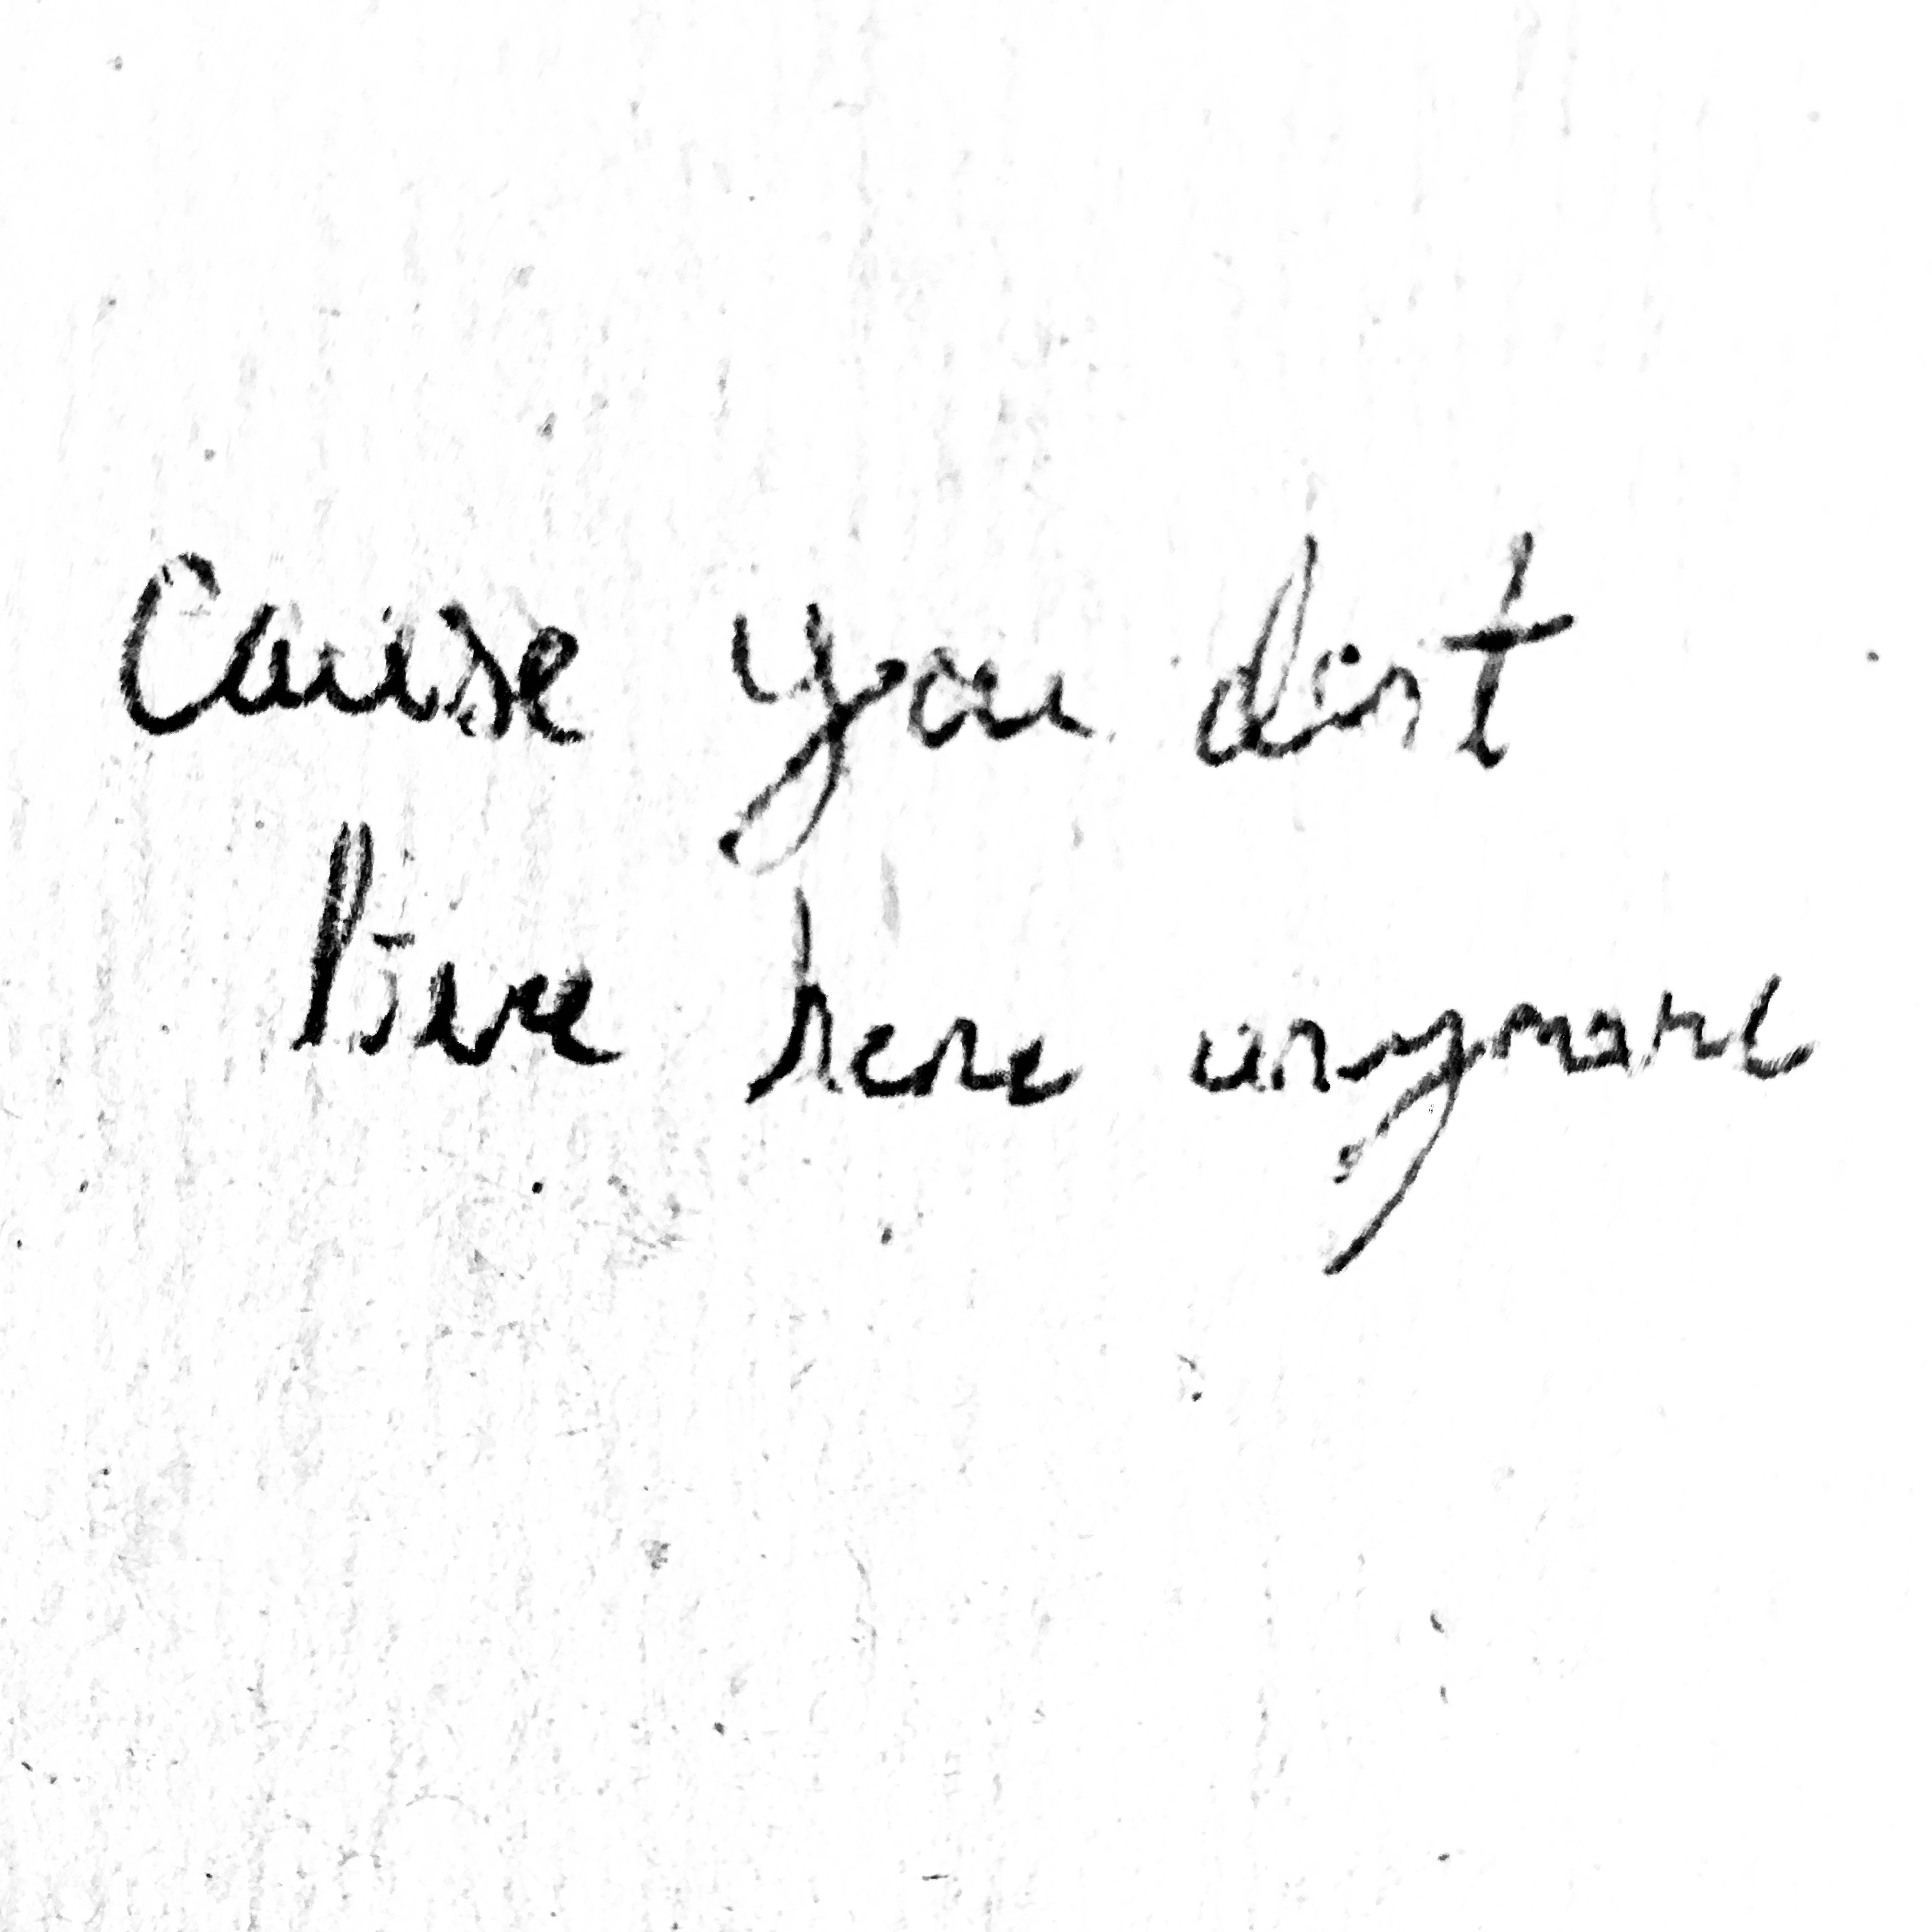 Cause you dont
live here anymore